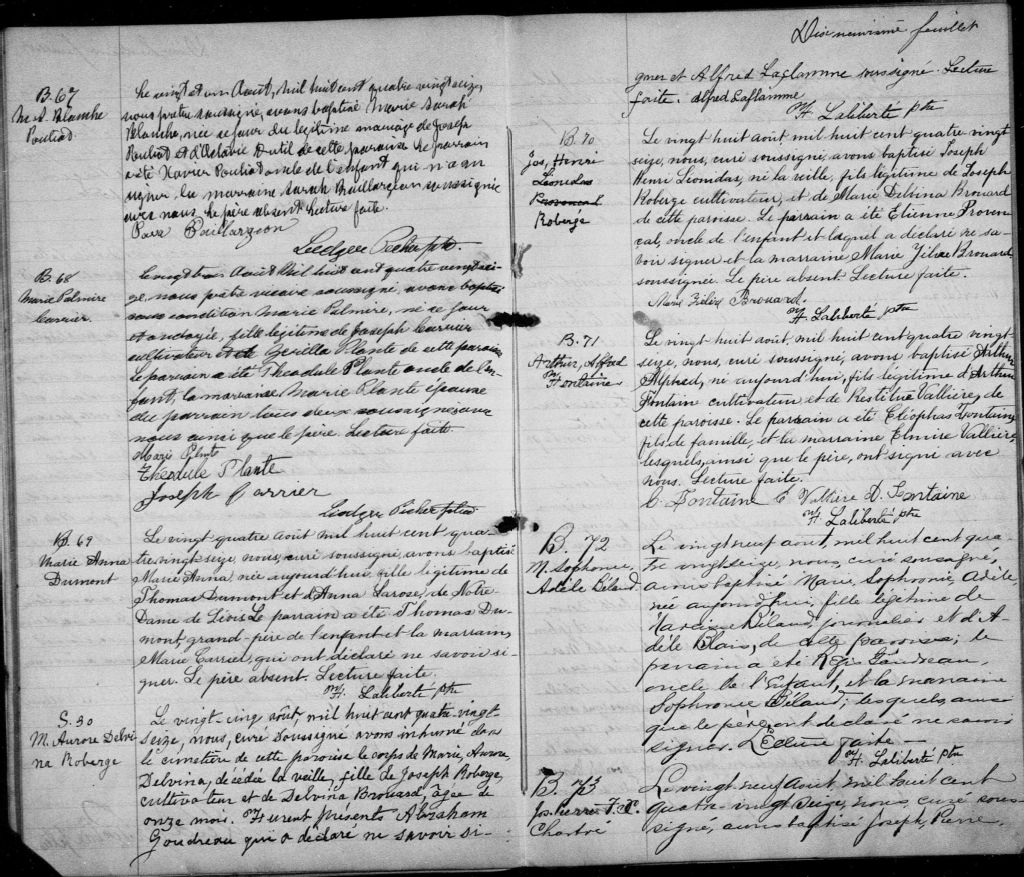 B. 67
M. S. Blanche
Pouliot
Le vingt et un Août, mil huit cent quatre vingt seize,
nous prêtre soussigné, avons baptisé Marie Sarah
Blanche, née ce jour du légitime mariage de Joseph
Pouliot et d'Octavie Dutil de cette paroisse. Le parrain
a été Xavier Pouliot oncle de l'enfant qui n'a su
signer, la marraine Sarah Baillargeon soussignée
avec nous. Le père absent. Lecture faite.
Sara Baillargeon
Ludger Picher ptre.
B. 68
Marie Palmire
Carrier.
Le vingt trois Août Mil huit cent quatre vingt sei-
ze, nous prêtre vicaire soussigné, avons baptisé
sous condition Marie Palmire, née ce jour
et ondoyée, fille légitime de Joseph Carrier
cultivateur et de Plante de cette paroisse
Le parrain a été Théodule Plante oncle de l'en-
fant, la marraine Marie Plante épouse
du parrain tous deux soussignés avec
nous ainsi que le père. Lecture faite.
Marie Plante
Théodule Plante
Joseph Carrier
Ludger Picher ptre
B. 69
Marie Anna
Dumont
Le vingt quatre août mil huit cent qua-
tre vingt seize, nous, curé soussigné, avons baptisé
Marie Anna, née aujourd'hui, fille légitime de
Thomas Dumont et d'Anna Larose, de Notre
Dame de Lévis. Le parrain a été Thomas Du-
mont, grand-père de l'enfant et la marraine,
Marie Carrier, qui ont déclaré ne savoir si-
gner. Le père absent. Lecture faite.
H. Laliberté ptre
S. 30
M. Aurore Delvi-
na Roberge
Le vingt-cinq août, mil huit cent quatre-vingt
seize, nous, curé soussigné avons inhumé dans
le cimetière de cette paroisse le corps de Marie, Aurore,
Delvina, décédée la veille, fille de Joseph Roberge,
cultivateur et de Delvina Brouard, âgée de
onze mois. Furent présents Abraham
Goudreau qui a déclaré ne savoir si-
Dix neuvième feuillet
gner et Alfred Laflamme soussigné. Lecture
faite. Alfred Laflamme
H. Laliberté ptre
B. 70
Jos, Henri
Léonidas
Provencal
Roberge
Le vingt huit août, mil huit cent quatre vingt
seize, nous, curé soussigné, avons baptisé Joseph
Henri Léonidas, né la veille, fils légitime de Joseph
Roberge cultivateur, et de Marie Delvina Brouard
de cette paroisse. Le parrain a été Etienne Proven-
cal, oncle de l'enfant et lequel a déclaré ne sa-
voir signer et la marraine Marie Brouard,
soussignée. Le père absent. Lecture faite.
Marie Brouard.
H. Laliberté, ptre
B. 71
Arthur, Alfred
Fontaine
Le vingt huit août, mil huit cent quatre vingt
seize, nous, curé soussigné, avons baptisé Arthur
Alphred, né aujourd'hui, fils légitime d'Arthur
Fontaine cultivateur et de Restitue Vallière, de
cette paroisse. Le parrain a été Cléophas Fontaine,
fils de famille, et la marraine Elmire Vallière,
lesquels, ainsi que le père, ont signé avec
nous. Lecture faite.
C. Fontaine E Vallière D. Fontaine
H. Laliberté ptre
B. 72
M. Sophronie,
Adèle Béland
Le vingt neuf août, mil huit cent qua-
tre vingt seize, nous, curé soussigné,
avons baptisé Marie, Sophronie, Adèle,
née aujourd'hui, fille légitime de
Narcisse Béland, journalier et d'A-
dèle Blais, de cette paroisse; le
parrain a été Régis Gaudreau,
oncle de l'enfant, et la marraine
Sophronie Béland, lesquels, ainsi
que le père, ont déclaré ne savoir
signer. Lecture faite—
H. Laliberté ptre
B. 73
Jos. Pierre
Chartré
Le vingt neuf Août, mil huit cent
quatre-vingt seize, nous, curé sous-
signé, avons baptisé Joseph, Pierre,